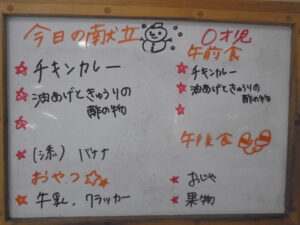 今日の献立
☆チキンカレー
☆油あげときゅうりの
酢の物
☆
(添) バナナ
おやつ☆☆
☆牛乳、クラッカー
0才児
午前食
☆チキンカレー
☆油あげときゅうりの
酢の物
☆
午後食
☆おじや
☆果物